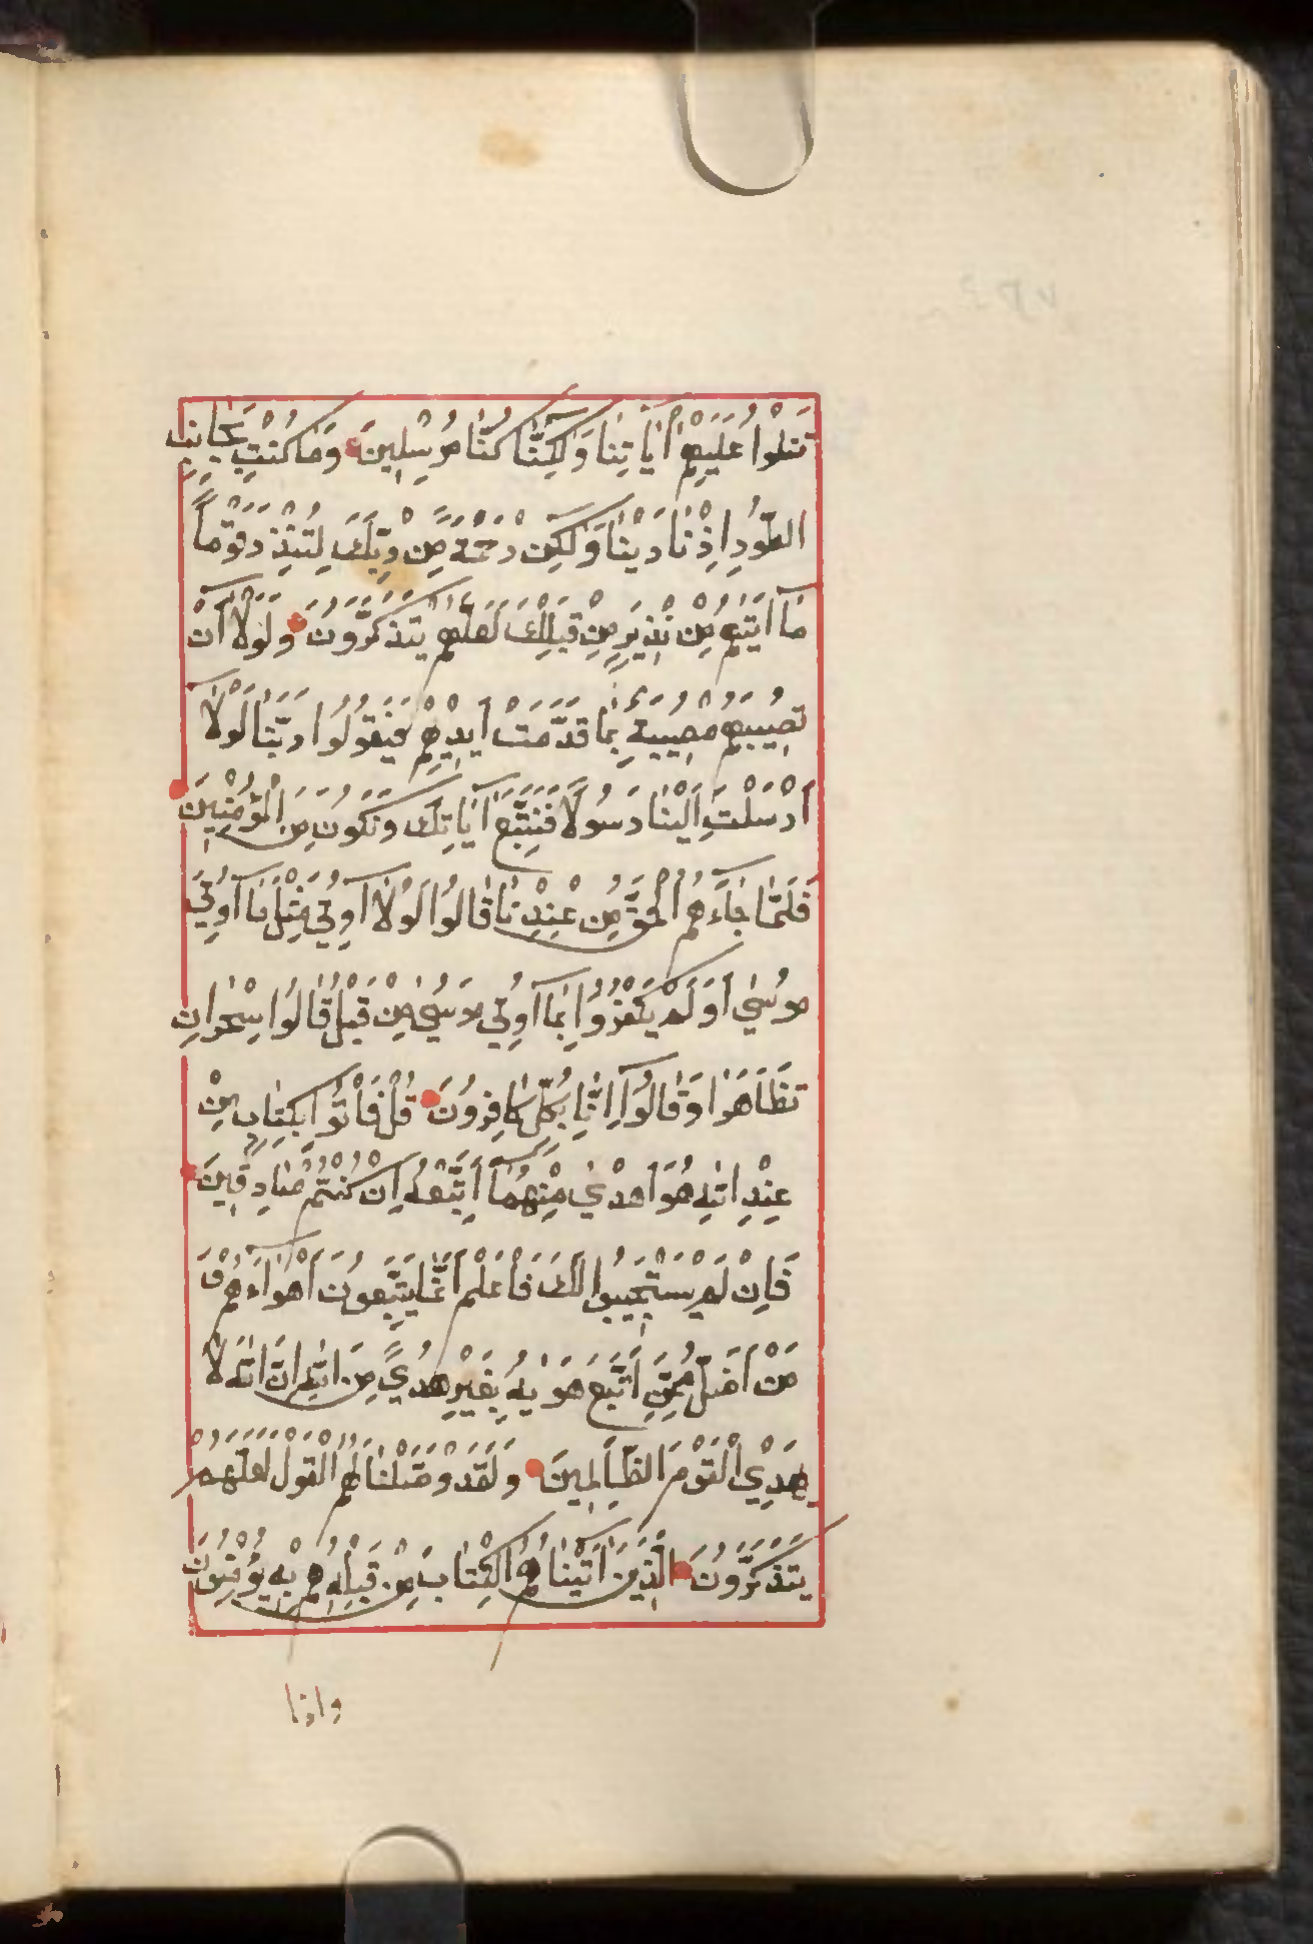 تَتْلُوا عَلَيْهِمْ اٰيَاتِنَا وَلٰكِنَّا كُنَّا مُرْسِلِينَ وَمَا كُنْتَ بِجَانِبِ
الطُّورِ اِذْ نَادَيْنَا وَلٰكِنْ رَحْمَةً مِنْ رَبِّكَ لِتُنْذِرَ قَوْمًا
مَآ اَتٰيهُمْ مِنْ نَذِيرٍ مِنْ قَبْلِكَ لَعَلَّهُمْ يَتَذَكَّرُونَ وَلَوْلَآ اَنْ
تُصِيبَهُمْ مُصِيبَةٌ بِمَا قَدَّمَتْ اَيْدِيهِمْ فَيَقُولُوا رَبَّنَا لَوْلَآ
اَرْسَلْتَ اِلَيْنَا رَسُولًا فَنَتَّبِعَ اٰيَاتِكَ وَنَكُونَ مِنَ الْمُؤْمِنِينَ
فَلَمَّا جَآءَهُمُ الْحَقُّ مِنْ عِنْدِنَا قَالُوا لَوْلَآ اُوتِيَ مِثْلَ مَآ اُوتِيَ
مُوسٰي اَوَلَمْ يَكْفُرُوا بِمَآ اُوتِيَ مُوسٰي مِنْ قَبْلُ قَالُوا سِحْرَانِ
تَظَاهَرَا وَقَالُوآ اِنَّا بِكُلٍّ كَافِرُونَ قُلْ فَأْتُوا بِكِتَابٍ مِنْ
عِنْدِ اللّٰهِ هُوَ اَهْدٰي مِنْهُمَآ اَتَّبِعْهُ اِنْ كُنْتُمْ صَادِقِينَ
فَاِنْ لَمْ يَسْتَجِيبُوا لَكَ فَاعْلَمْ اَنَّمَا يَتَّبِعُونَ اَهْوَآءَهُمْ وَ
مَنْ اَضَلُّ مِمَّنِ اتَّبَعَ هَوٰيهُ بِغَيْرِ هُدًي مِنَ اللّٰهِ اِنَّ اللّٰهَ لَا
يَهْدِي الْقَوْمَ الظَّالِمِينَ وَلَقَدْ وَصَّلْنَا لَهُمُ الْقَوْلَ لَعَلَّهُمْ
يَتَذَكَّرُونَ الَّذِينَ اٰتَيْنَاهُمُ الْكِتَابَ مِنْ قَبْلِهِ هُمْ بِهِ يُؤْمِنُونَ
واذا